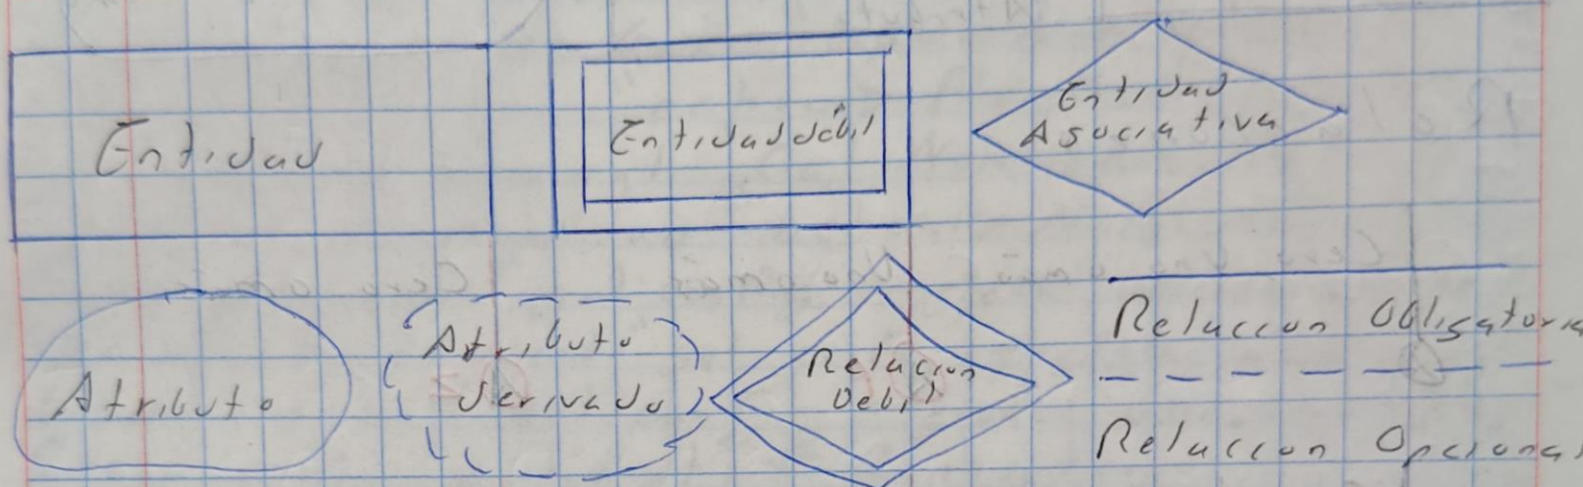 Entidad
Entidad débil
Entidad
Asociativa
Atributo
Atributo
derivado
Relacion
Debil
Relaccion Obligatoria
Relaccion Opcional